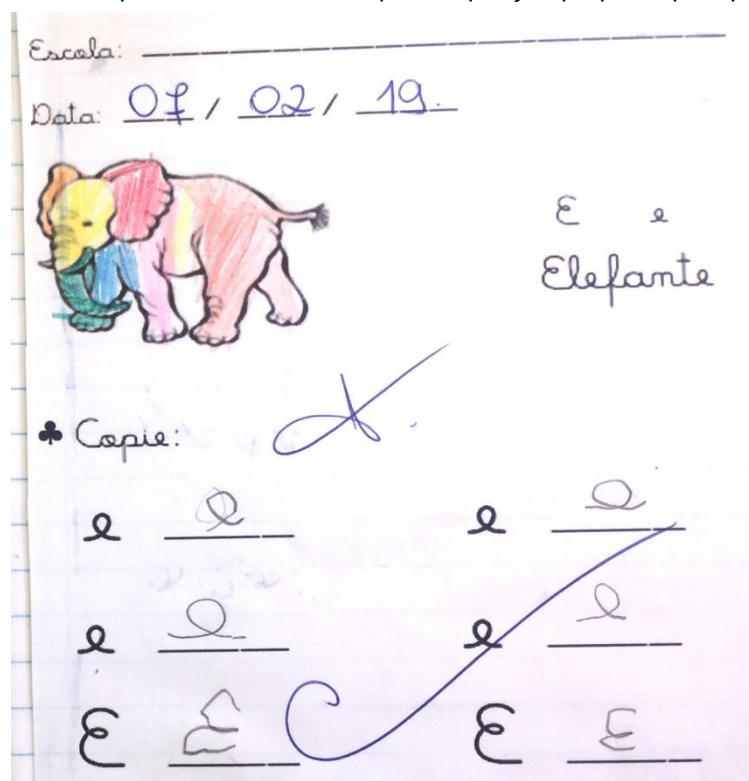 Escola:
Data: 07 / 02 / 19.
E e
Elefante
♣ Copie:
e e e e
e e e e
E E E E